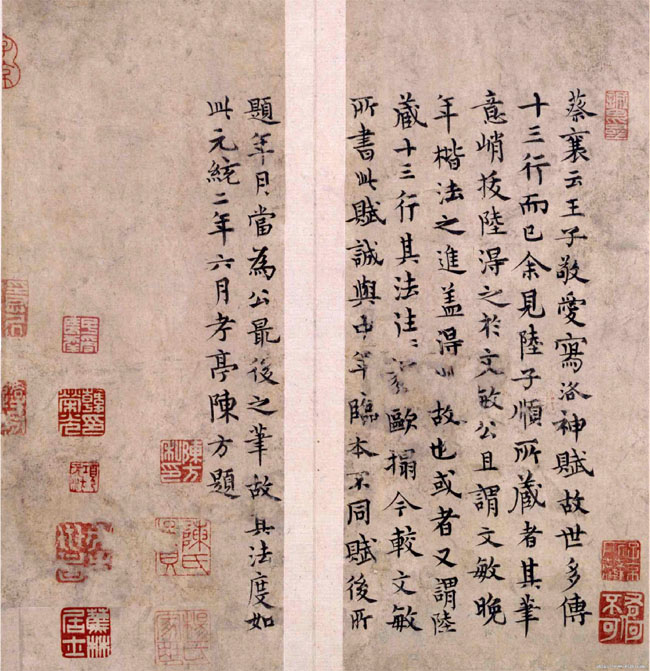 蔡襄云王子敬愛寫洛神賦故世多傳
十三行而已余見陸子順所藏者其筆
意峭拔陸得之於文敏公且謂文敏晚
年楷法之進盖得此故也或者又謂陸
藏十三行其法往〻歐搨今較文敏
所書此賦誠與中年臨本不同賦後所
題年月當為公最後之筆故其法度如
此元統二年六月孝亭陳方題
蕉林居士